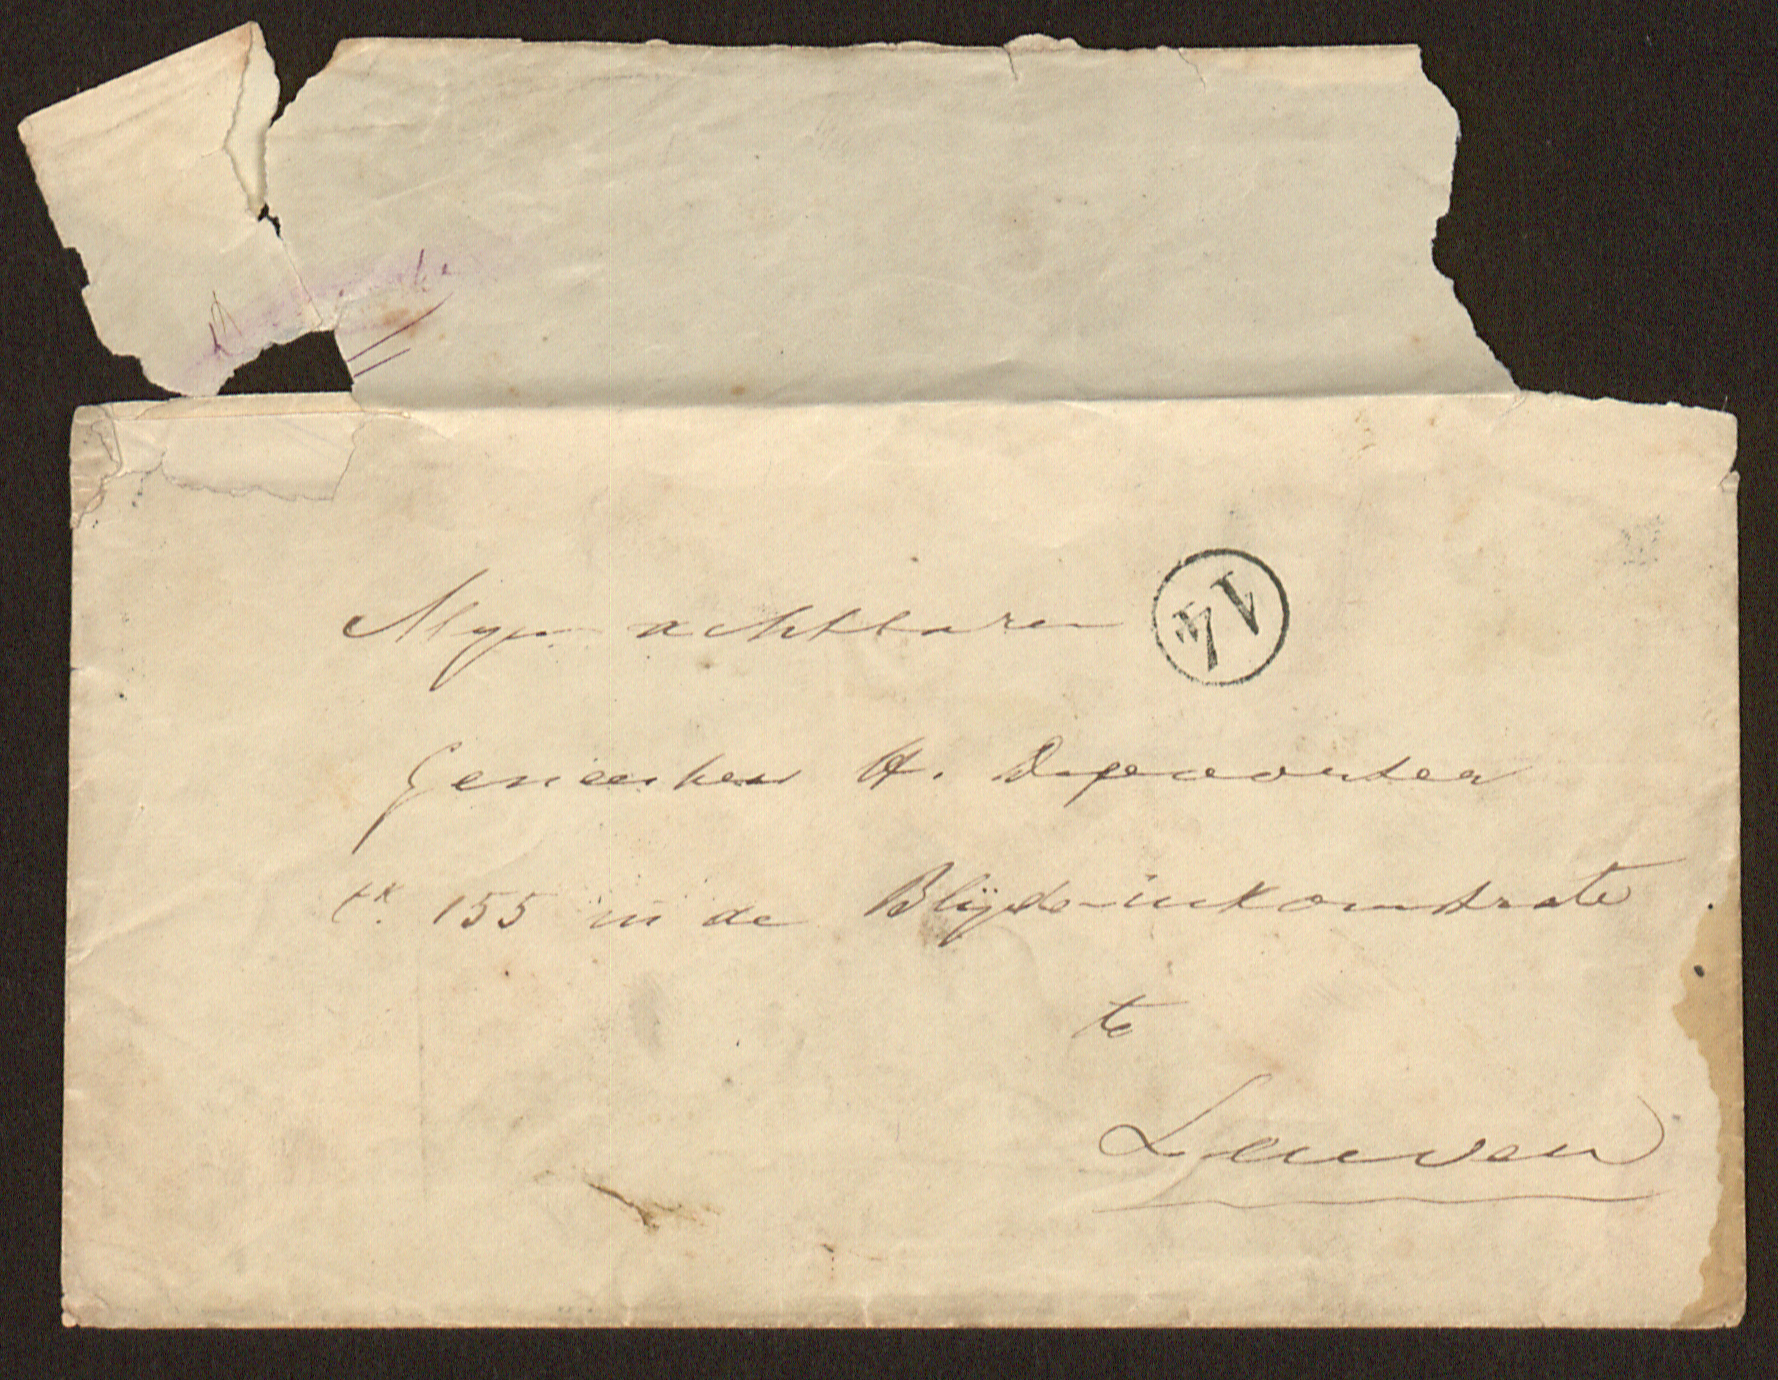 Myn achtbaren
14
Geneesheer H. Depoorter
155 in de Blijde-inkomstrate
te
Leuven